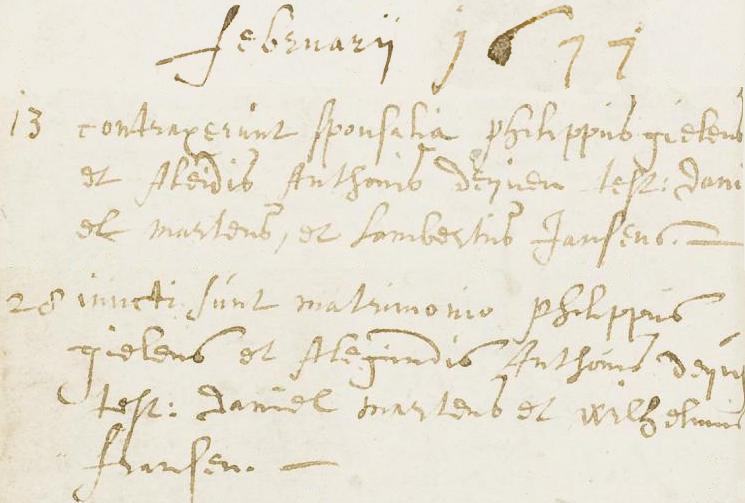 februarij 1677
13 contraxerunt sponsalia philippus gielens
et Aleidis Anthonis deijnen test: Dani
el martens, et Lambertus Jansens.
28 iuncti sunt matrimonio philippus
gielens et Alegundis Anthonis
test: Daniel martens et wilhelmus
fransen.